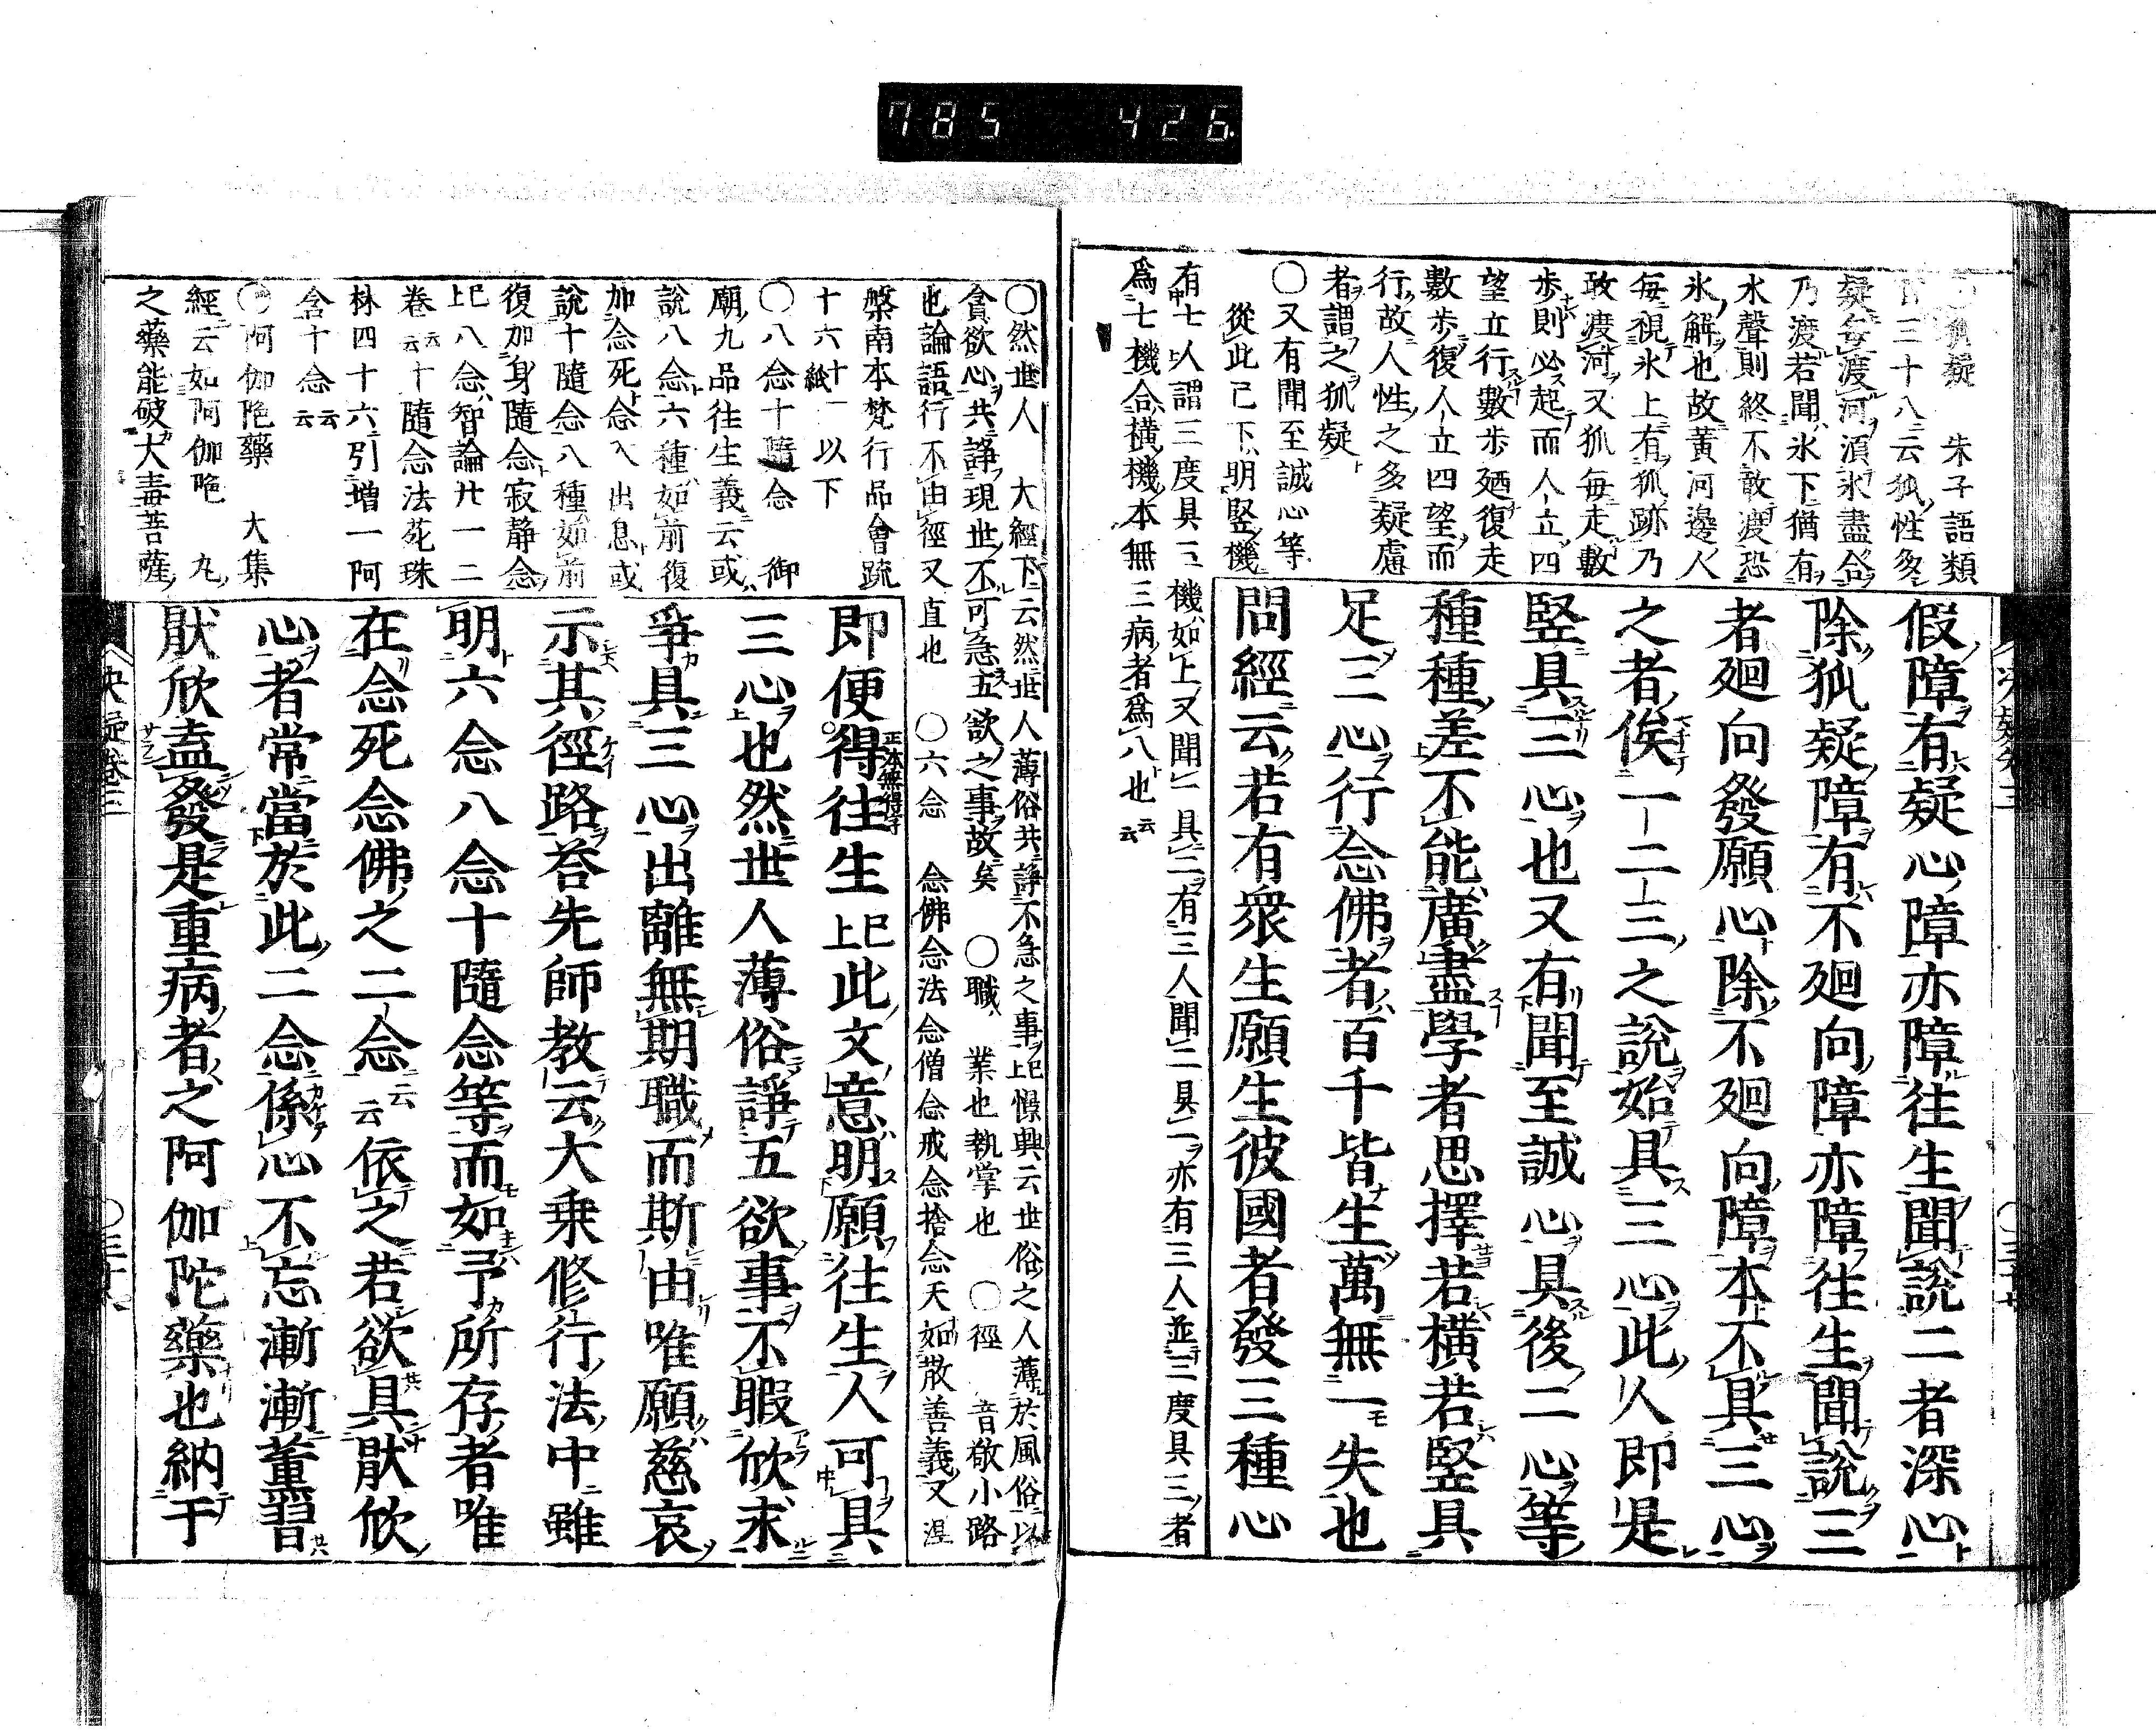 785 426.
狐疑 朱子語類
三十八云狐性多
疑每渡河須氷盡合
乃渡若聞氷下猶有
水聲則終不敢渡恐
氷解也故黃河邊人
每視氷上有狐跡乃
敢渡河又狐每走數
步則必起而人立四
望立行數步廼復走
數步復人立四望而
行故人性之多疑慮
者謂之狐疑
○又有聞至誠心等
從此已下明竪機
有七人謂三度具三機如上又聞一具二有三人聞二具一亦有三人並三度具三者
爲七機合橫機本無三病者爲八也云云
假障有疑心障亦障往生聞說二者深心
除狐疑障有不廻向障亦障往生聞說三
者廻向發願心除不廻向障本不具三心
之者俟一二三之說始具三心此人即是
竪具三心也又有聞至誠心具後二心等
種種差不能廣盡學者思擇若橫若竪具
足三心行念佛者百千皆生萬無一失也
問經云若有衆生願生彼國者發三種心
○然世人 大經下云然世人薄俗共諍不急之事已上憬興云世俗之人薄於風俗以
貪欲心共諍現世不可急五欲之事故矣 ○職 業也執掌也 ○徑 音敬小路
也論語行不由徑又直也 ○六念 念佛念法念僧念戒念捨念天如散善義又涅
槃南本梵行品會疏
十六十一紙以下
○八念十隨念 御
廟九品往生義云或
說八念六種如前復
加念死念入出息或
說十隨念八種如前
復加身隨念寂靜念
已上八念智論廿一二
卷云云十隨念法苑珠
林四十六引增一阿
含十念云云
○阿伽陁藥 大集
經云如阿伽陁 九
之藥能破大毒菩薩
即便得往生已上此文意明願往生人可具
正本無得字
三心也然世人薄俗諍五欲事不暇欣求
爭具三心出離無期職而斯由唯願慈哀
示其徑路荅先師教云大乗修行法中雖
明六念八念十隨念等而如予所存者唯
在念死念佛之二念云云依之若欲具猒欣
心者常當於此二念係心不忘漸漸薰習
猒欣盍發是重病者之阿伽陀藥也納于